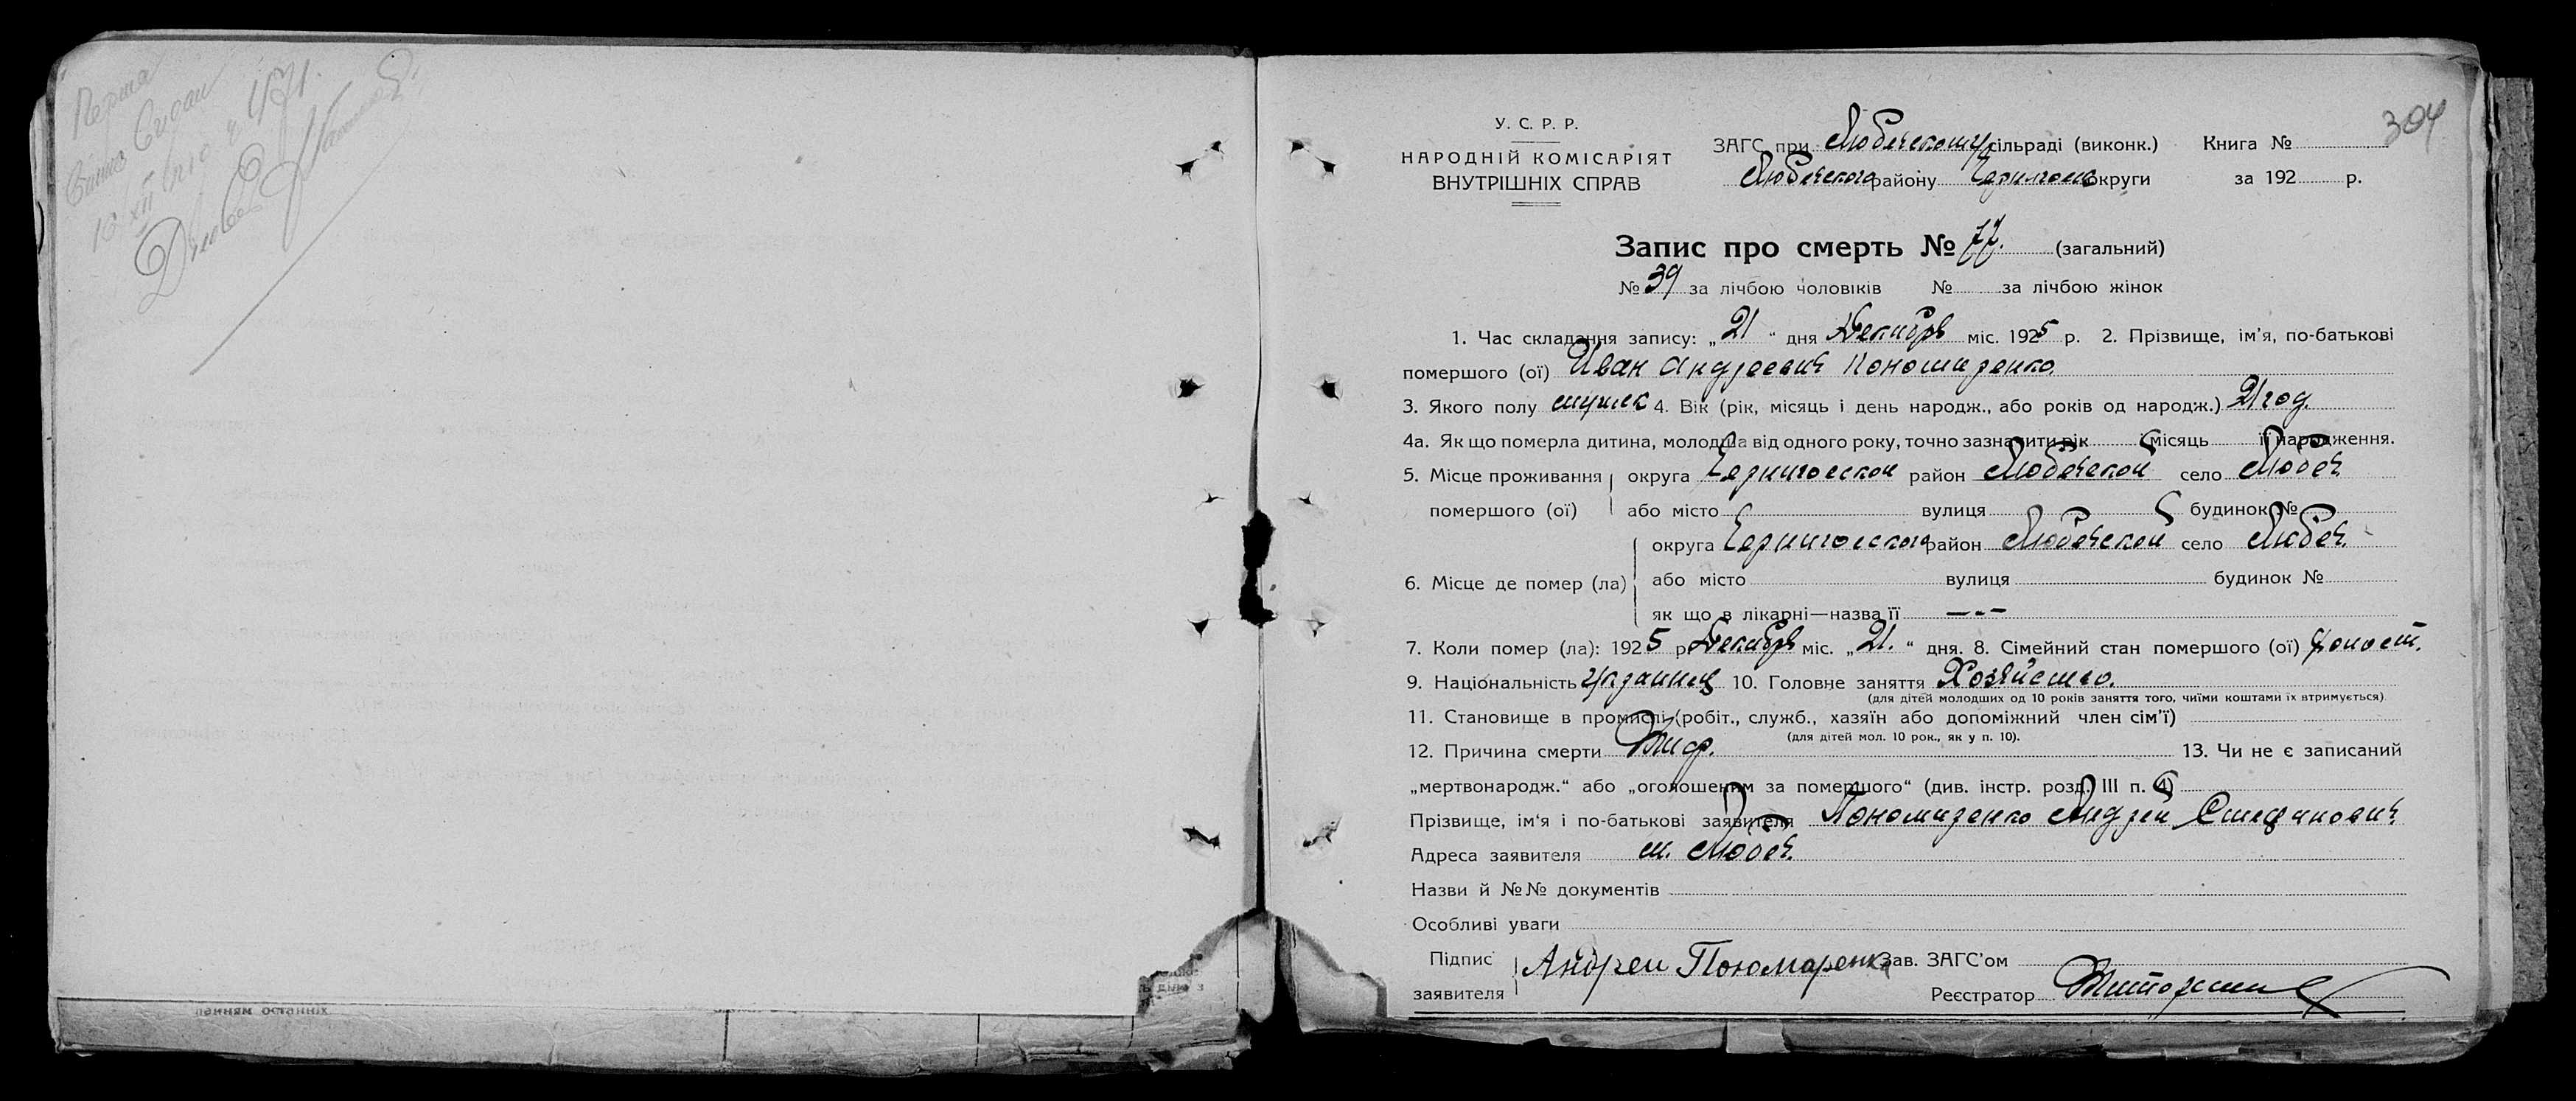 304
У. С. Р. Р.
НАРОДНІЙ КОМІСАРІЯТ
ВНУТРІШНІХ СПРАВ
ЗАГС при Любечскому сільраді (виконк.) Книга №
Любечского району Чернигов округи за 192 р.
Запис про смерть № 77. (загальний)
№ 39 за лічбою чоловіків № за лічбою жінок
1. Час складання запису: „21“ дня Декабря міс. 1925 р. 2. Прізвище, ім'я, по-батькові
помершого (ої) Иван Андреевич Пономаренко.
3. Якого полу мужск 4. Вік (рік, місяць і день народж., або років од народж.) 21 год.
4а. Як що померла дитина, молодша від одного року, точно зазначити рік і місяць її народження.
5. Місце проживання округа Черниговской район Любечской село Любеч.
помершого (ої) або місто вулиця будинок №
округа Черниговского район Любечской село Любеч.
6. Місце де помер (ла) або місто вулиця будинок №
як що в лікарні—назва її
7. Коли помер (ла): 1925 р Декабря міс. „21.“ дня. 8. Сімейний стан помершого (ої) холост.
9. Національність украинец 10. Головне заняття Хозяйство.
(для дітей молодших од 10 років заняття того, чиїми коштами їх втримується)
11. Становище в промислі (робіт., служб., хазяїн або допоміжний член сім'ї)
(для дітей мол. 10 рок., як у п. 10).
12. Причина смерти Тиф. 13. Чи не є записаний
„мертвонародж.“ або „оголошеним за помершого“ (див. інстр. розд. III п. 4)
Прізвище, ім'я і по-батькові заявителя Пономаренко Андрей Стефанович
Адреса заявителя м. Любеч.
Назви й №№ документів
Особливі уваги
Підпис заявителя Андреи Пономаренко Зав. ЗАГС'ом
Реєстратор
панням останніх